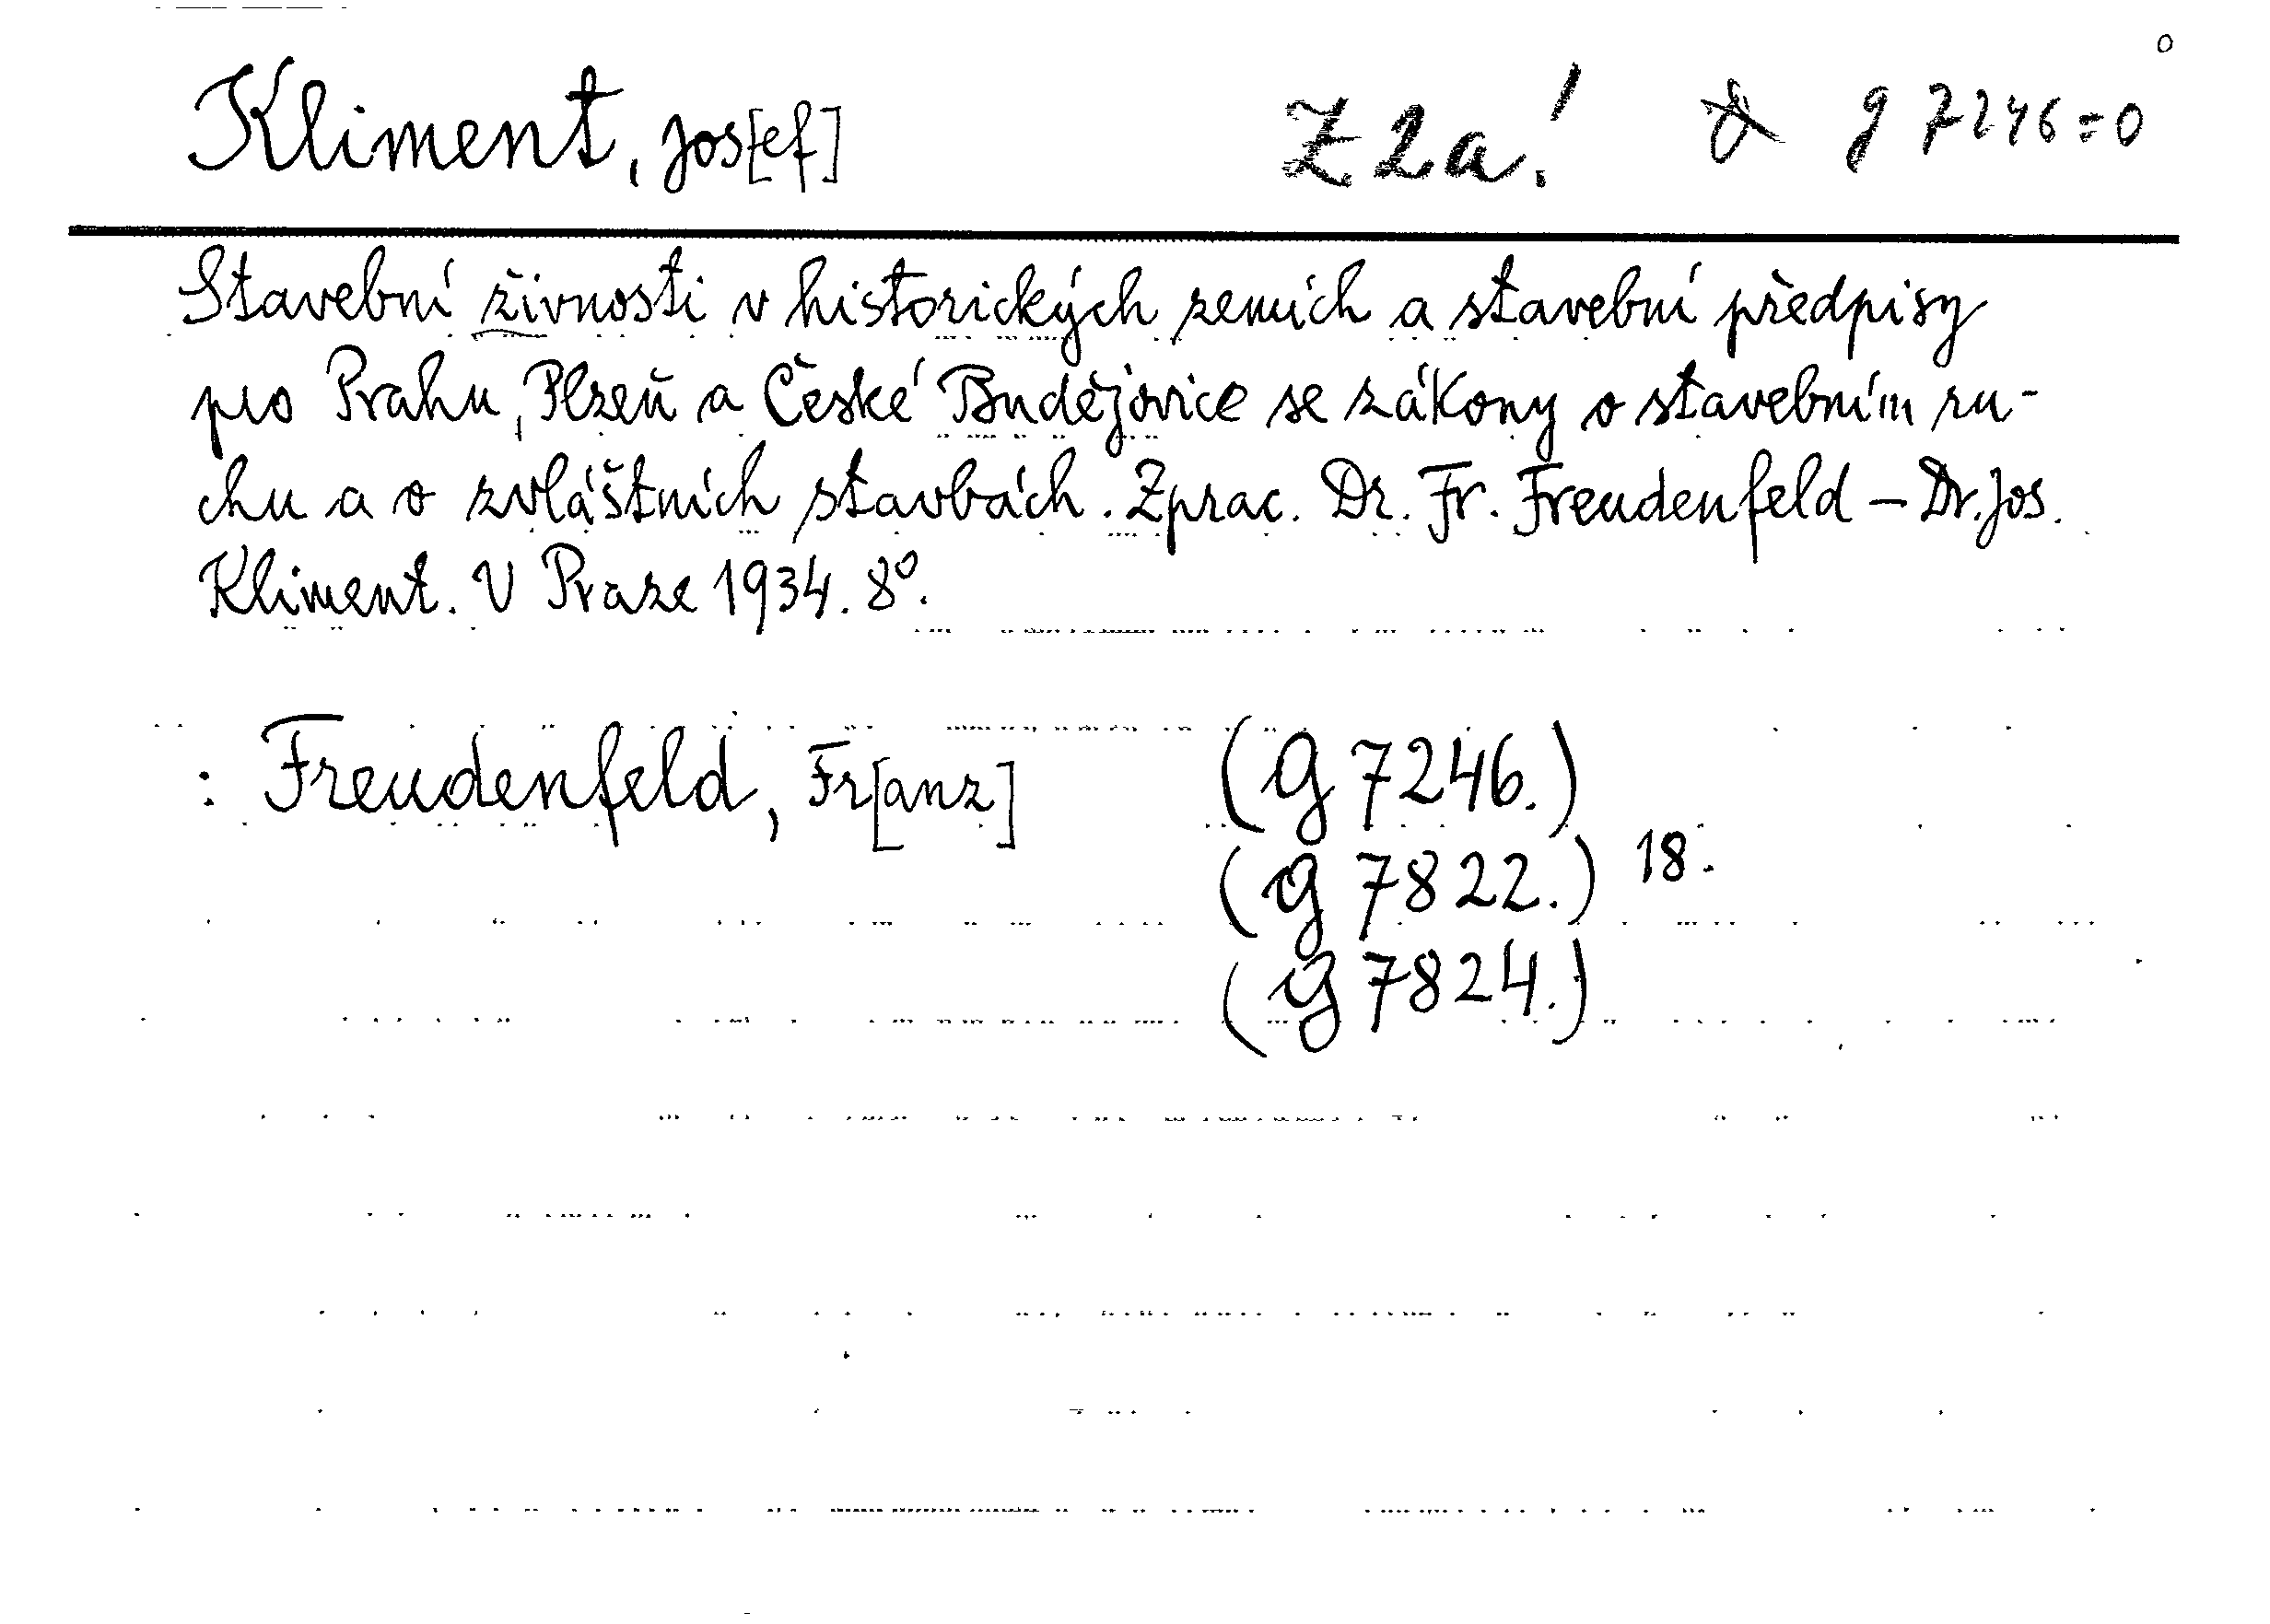 Kliment, Jos[ef] Z 2a! g 7246=0
Stavební živnosti v historických zemích a stavební předpisy
pro Prahu, Plzeň a České Budějovice se zákony o stavebním ru-
chu a o zvláštních stavbách. Zprac. Dr. Fr. Freudenfeld – Dr. Jos.
Kliment. V Praze 1934. 8°.
: Freudenfeld, Fr[anz] (g 7246.)
(g 7822.) 18.
(g 7824.)